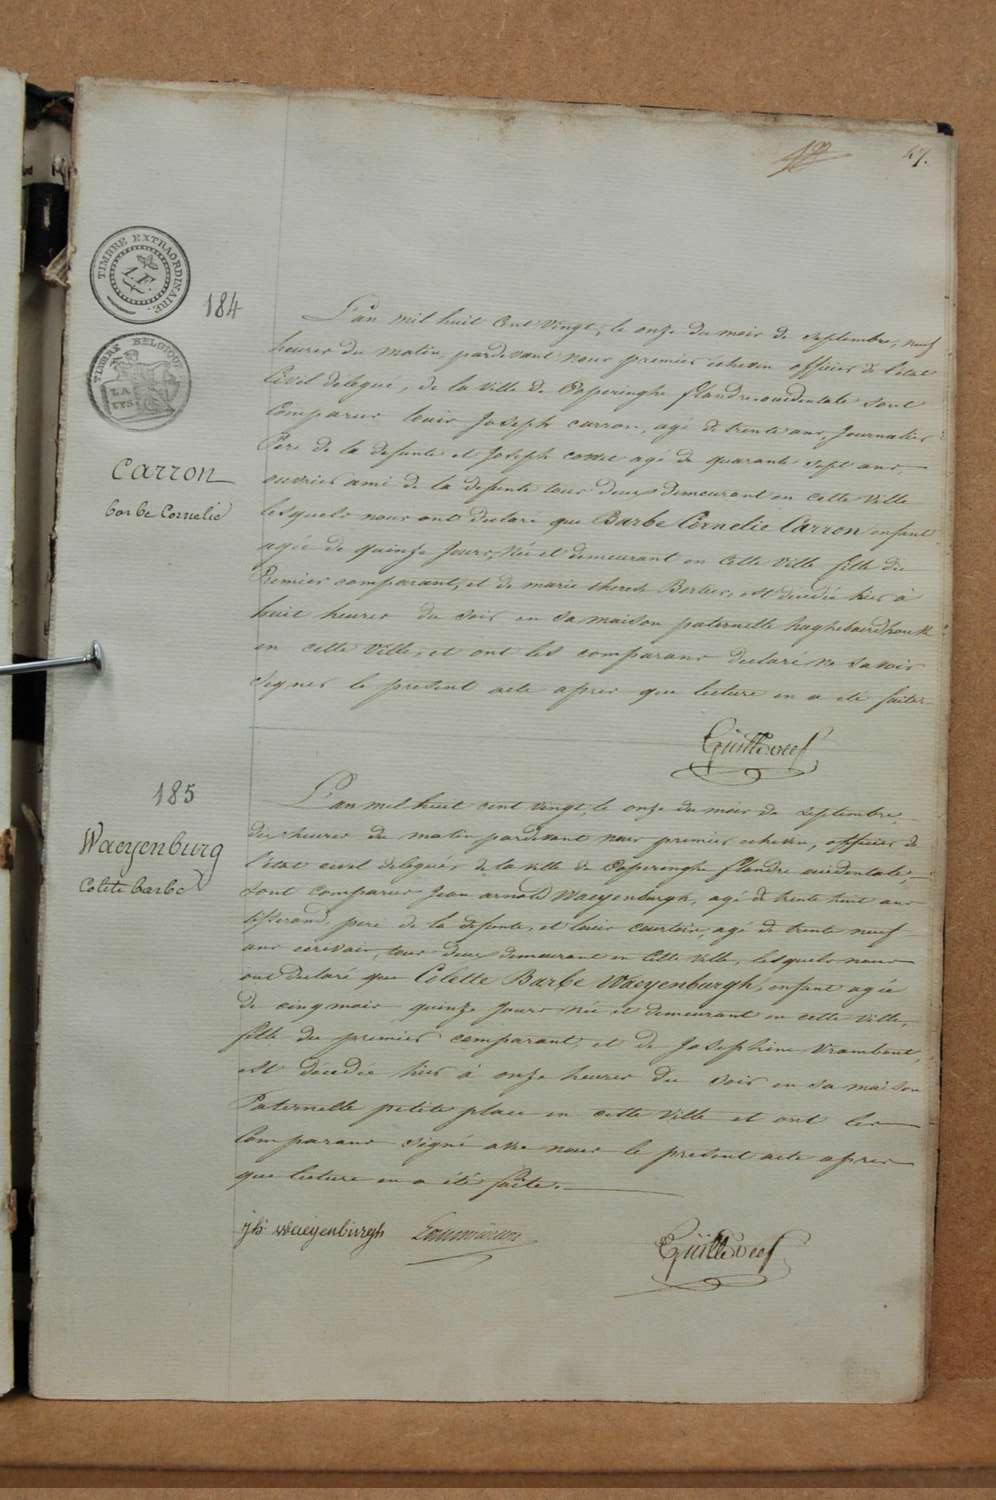 47.
TIMBRE EXTRAORDINAIRE.
TIMBRE BELGIQUE
LA
LYS
184
Carron
barbe Cornelie
L'an mil huit Cent Vingt, le onze du mois de Septembre, neuf
heures du matin, pardevant nous premier echevin officier de l'état
Civil delegué, de la ville de Poperinghe flandre occidentale sont
Comparus louis Joseph carron, agé de trente ans, Journalier
Pere de la defunte et Joseph agé de quarante sept ans
ouvrier ami de la defunte tous deux demeurant en cette Ville
lesquels nous ont declaré que Barbe Cornelie Carron enfant
agée de quinze Jours, Née et demeurant en Cette Ville fille du
Premier comparant, et de marie therese Bertier, est decedée hier à
huit heures du soir en sa maison paternelle
en cette Ville, et ont les comparans declaré ne savoir
signer le present acte apres que lecture en a été faite
185
Waeyenburg
Colete barbe
L'an mil huit cent vingt, le onze du mois de septembre
dix heures du matin pardevant nous premier echevin, officier de
l'état civil delegués de la ville de Poperinghe flandre occidentale,
sont comparus Jean arnold Waeyenburgh, agé de trente huit ans
tisserand pere de la defunte, et louis agé de trente neuf
ans ecrivain, tous deux demeurant en Cette Ville, lesquels nous
ont declaré que Colette Barbe Waeyenburgh, enfant agée
de cinq mois quinze Jours Née et demeurant en cette Ville,
fille du premier comparant, et de Josephine Vrambout,
est décedée hier à onze heures du soir en sa maison
Paternelle petite place en cette Ville et ont les
Comparans signé avec nous le present acte apres
que lecture en a été faite.
Waeyenburgh